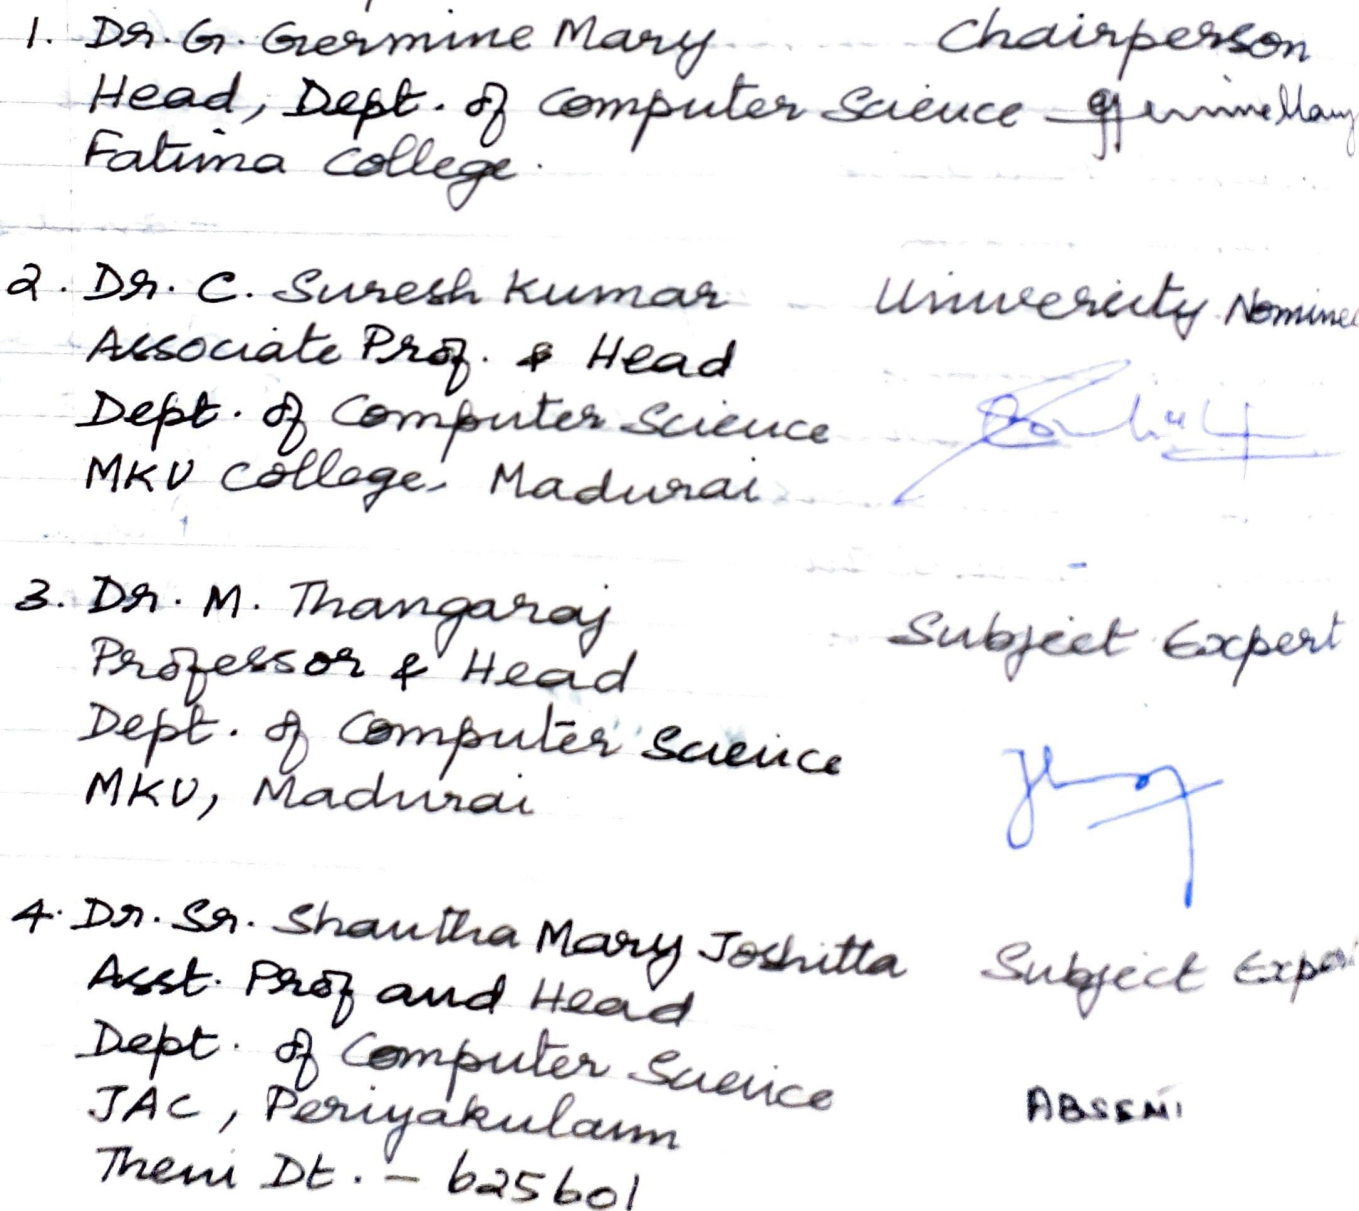 1. Dr. G. Germine Mary Chairperson
Head, Dept. of Computer Science GermineMary
Fatima College.
2. Dr. C. Suresh Kumar University Nominee
Associate Prof. & Head
Dept. of Computer Science
MKU College, Madurai
3. Dr. M. Thangaraj Subject Expert
Professor & Head
Dept. of Computer Science
MKU, Madurai
4. Dr. Sr. Shantha Mary Joshitta Subject Exper
Asst. Prof and Head
Dept. of Computer Science
JAC, Periyakulam ABSENT
Theni Dt. - 625601